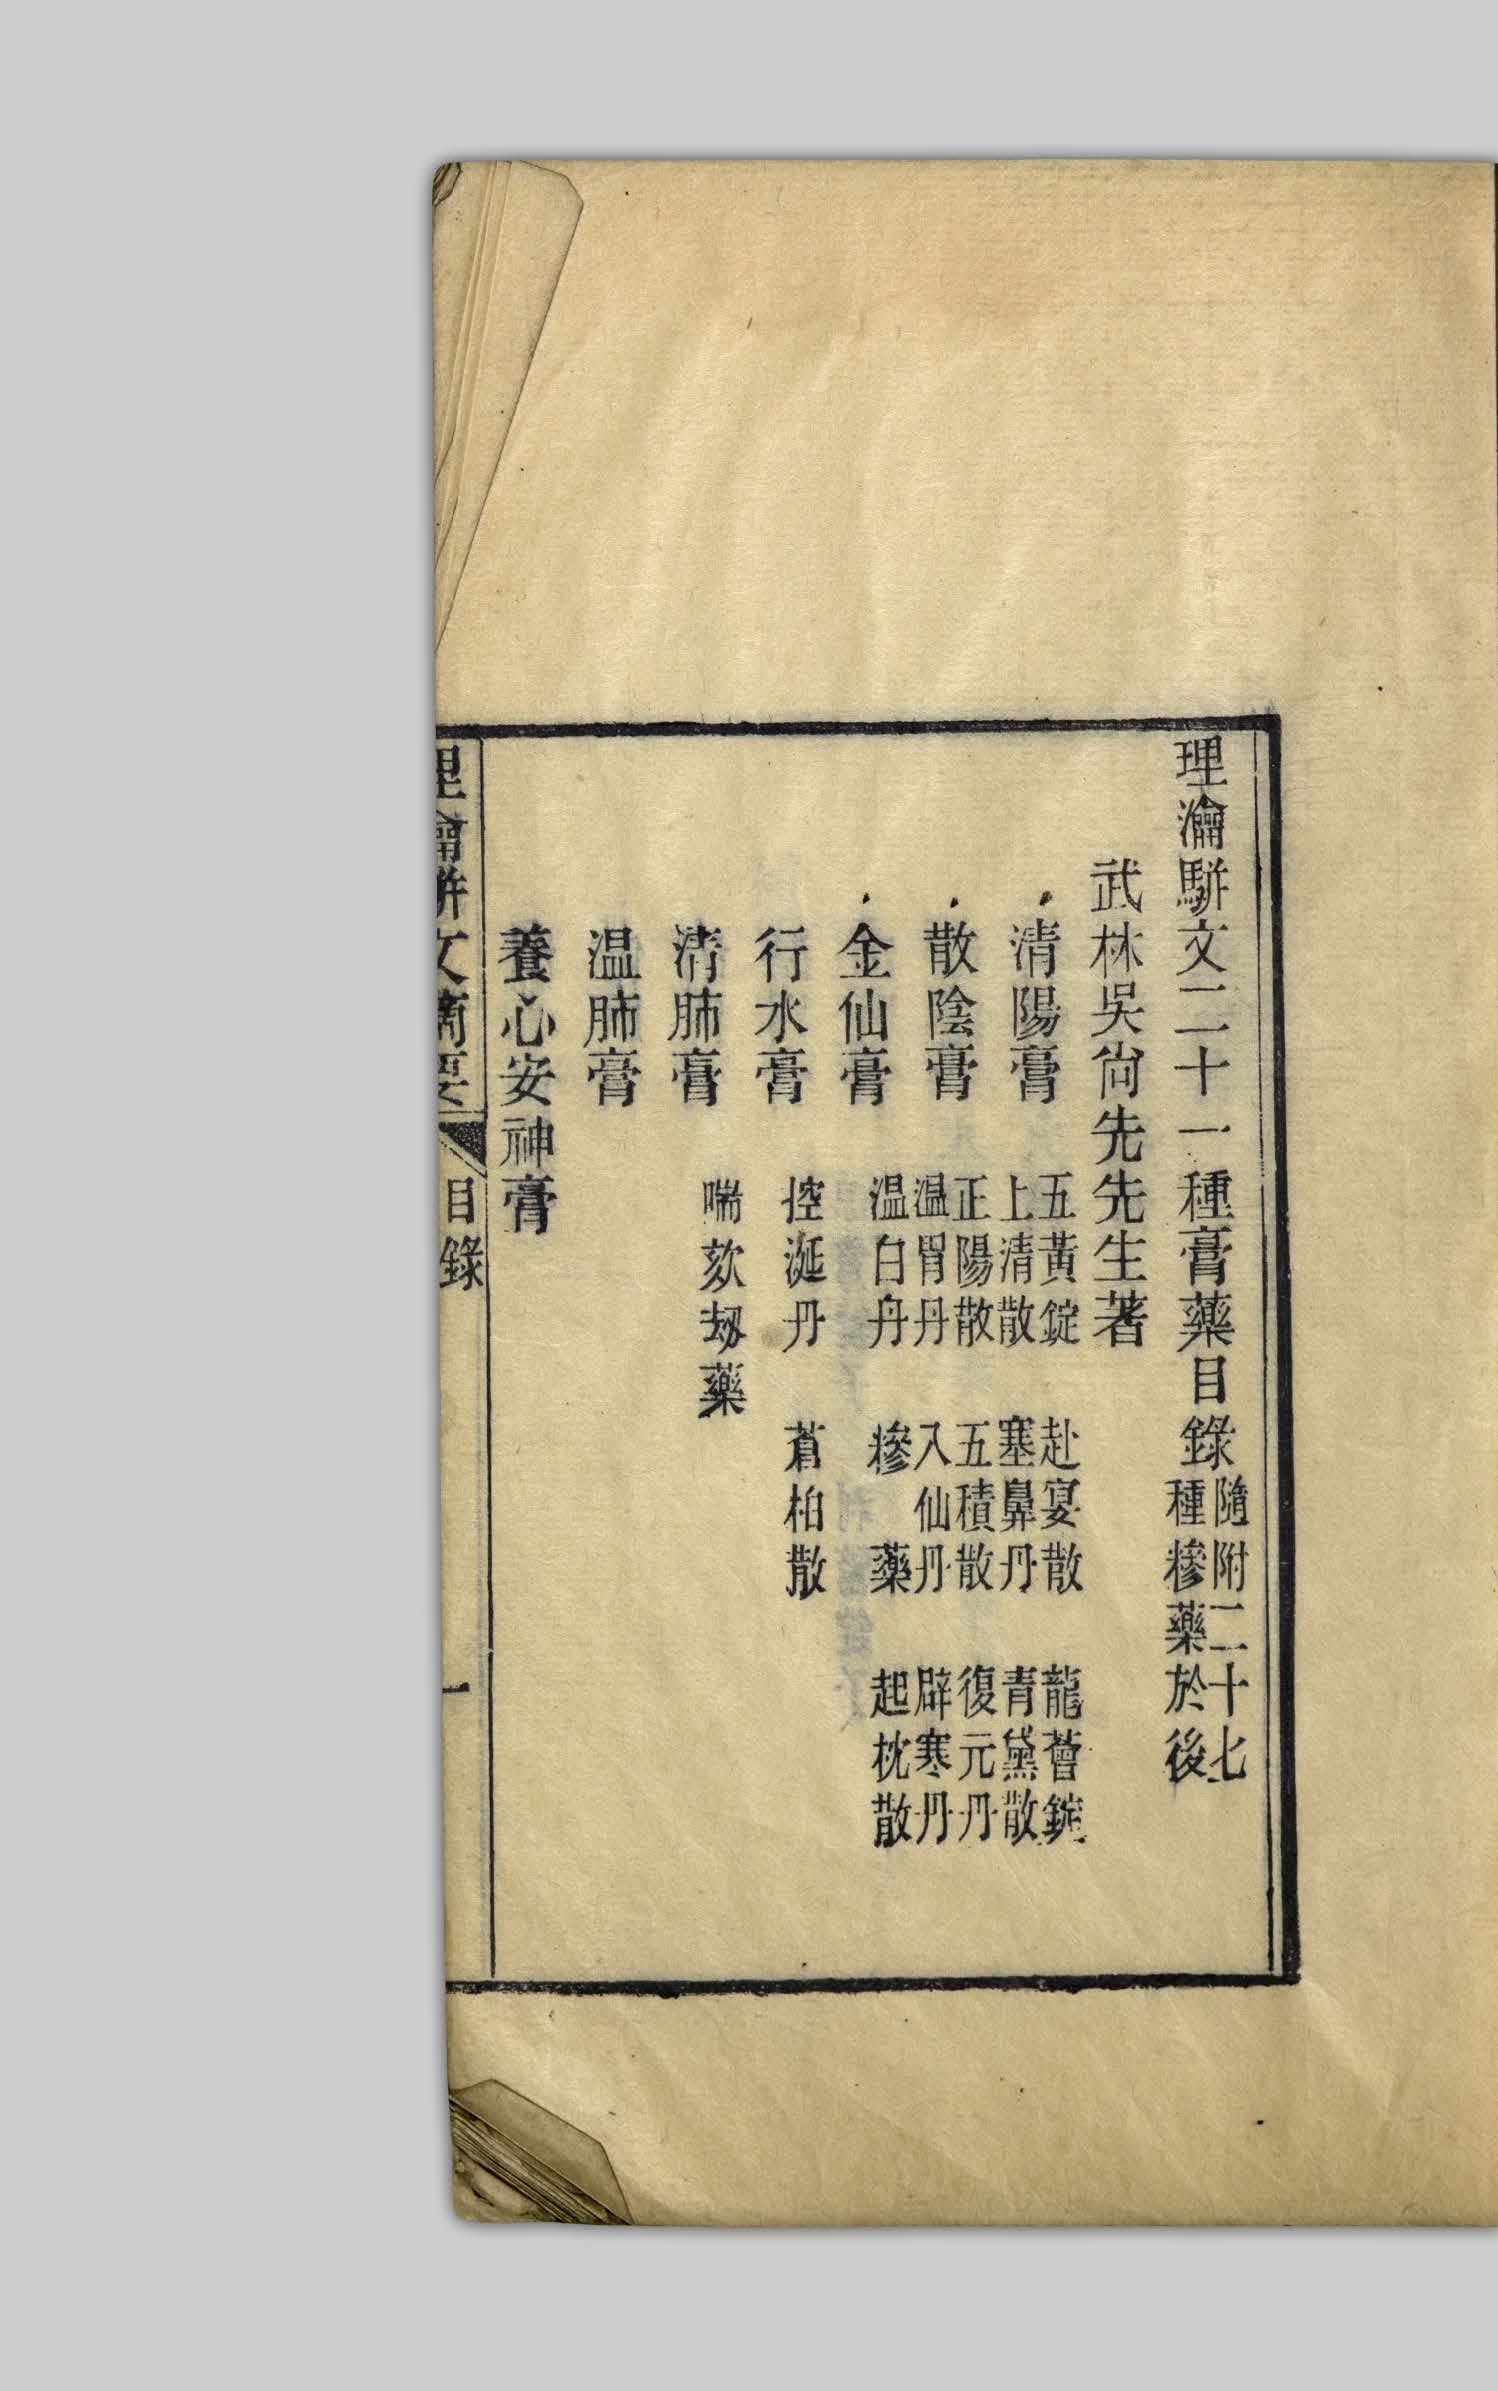 理瀹駢文二十一種膏藥目錄隨附二十七
種糝藥於後
武林吳尙先先生著
清陽膏
五黃錠 赴宴散 龍薈錠
上清散 塞鼻丹 青黛散
散陰膏
正陽散 五積散 復元丹
温胃丹 入仙丹 辟寒丹
金仙膏
温白丹 糝藥 起枕散
行水膏
控涎丹 蒼柏散
清肺膏
喘欬刼藥
温肺膏
養心安神膏
理瀹駢文摘要 目錄 一